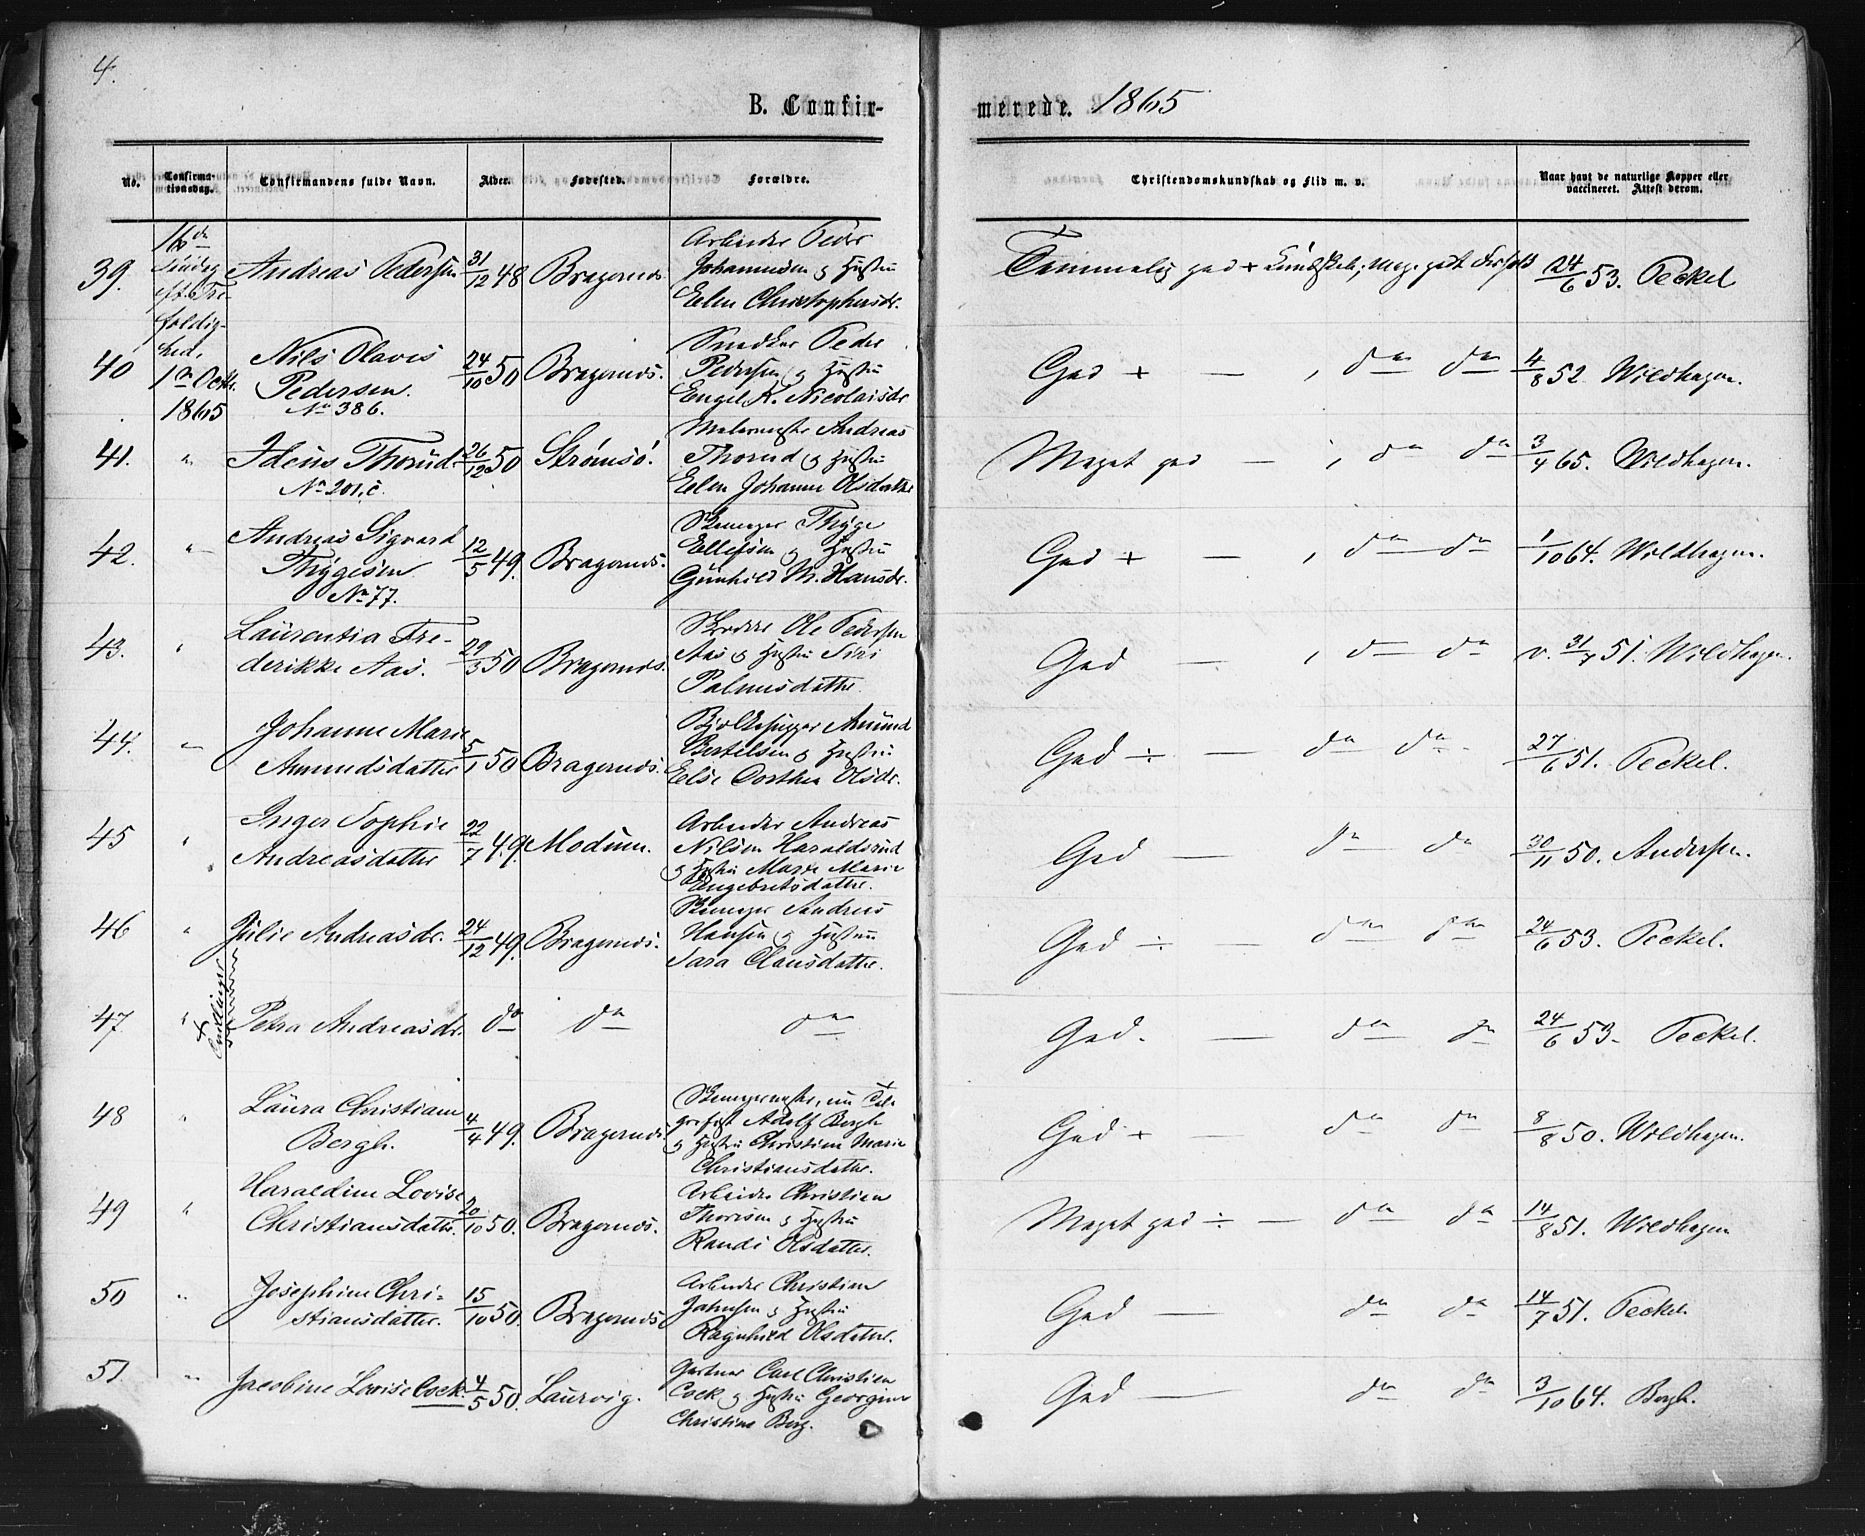 4.
B. Confir-
merede. 1865
No.
Confirma-
tionsdag.
Confirmandens fulde Navn.
Alder.
Fødested.
Forældre.
Christendomskundskab og Flid m. v.
Naar havt de naturlige Kopper eller
vaccineret. Attest derom.
16de
Søndag
eft. Tre-
foldig-
hed,
1ste Octbr.
1865
39. Andreas Pedersen 31/12 48 Bragernæs
Arbeider Peder
Johannesen og Hustru
Eelen Christophersdr.
Temmelig god + Kundskab; meg. godt Forhold 24/6 53. Peckel
40 Nils Olavis
Pedersen.
No 386.
24/10 50 Bragernæs.
Snedker Peder
Pedersen og Hustru
Engel K. Nicolaisdr
God + — , do do 4/8 52 Wildhagen.
41. " Idens Thorud
No 201, c.
26/12 50 Strømsö.
Malermester Andreas
Thorud og Hustru
Eelen Johanne Olsdatter
Meget god — , do do 3/4 65. Wildhagen.
42. " Andreas Sigvard
Thygesen
No 77.
12/5 49. Bragernæs.
Thyge
Ellefsen og Hustru
Gunhild M. Hansdr.
God + — , do do 1/10 64. Wildhagen.
43. " Laurentia Fre-
derikke Aas.
29/3 50 Bragernæs.
Ole Pedersen
Aas og Hustru Siri
Palmesdatter
God — , do do v. 31/7 51. Wildhagen.
44. " Johanne Marie
Amundsdatter
5/1 50 Bragernæs.
Amund
Bertelsen og Hustru
Else Dorthea Olsdr.
God ÷ — do do 27/6 51. Peckel.
45 " Inger Sophie
Andreasdatter
22/7 49 Modum.
Arbeider Andreas
Nilsen Haraldsrud
og Hustru Marie
Engebretsdatter.
God — do do 30/11 50. Andersen.
46 " Julie Andreasdr. 24/12 49. Bragernæs.
Andreas
Hansen og Hustru
Sara Clausdatter.
God ÷ — do do 24/6 53. Peckel.
Tvillinger
47 " Petra Andreasdr. do do do
God. — do do 24/6 53. Peckel.
48 " Laura Christiane
Bergh.
4/4 49. Bragernæs
nu Tele-
grafist Adolf Bergh
og Hustru Christine Marie
Christiansdatter.
God + — do do 8/8 50. Wildhagen.
49 " Haraldine Lovise
Christiansdatter.
20/10 50. Bragernæs.
Arbeider Christian
Thoresen og Hustru
Randi Olsdatter.
Meget god ÷ — do do 14/8 51. Wildhagen
50 " Josephine Chri-
stiansdatter.
15/10 50. Bragernæs
Arbeider Christian
og Hustru
Ragnhild Olsdatter.
God — do do 14/7 51. Peckel.
51 " Jacobine Lovise Cock. 4/5 50. Laurvig.
Gartner Carl Christian
Cock og Hustru Georgine
Christine Berg.
God — do do 3/10 64. Bergh.